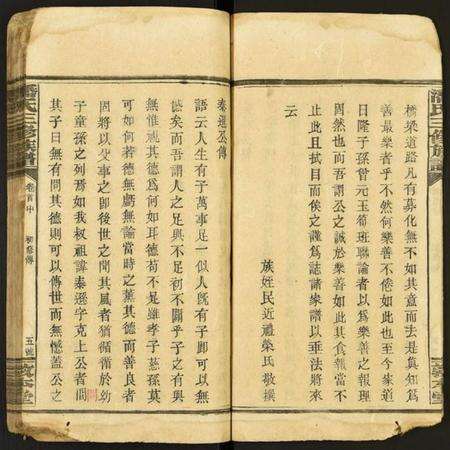 橋梁道路凡有募化無不如其意而去是真知為
善最樂者乎不然何樂善不倦如此也至今家道
日隆子孫曾元玉筍班聯論者以為樂善之報理
固然也而吾謂公之誠於樂善如此其食報當不
止此且拭目而俟之謹為誌諸家譜以垂法將來
云
族姪民近禮榮氏敬撰
潘氏三修族譜
敦本堂
秦遜公傳
語云人生有子萬事足一似人既有子即可以無
憾矣而吾謂人之足與不足初不關乎子之有與
無惟視其德為何如耳德苟不足雖孝子慈孫莫
可如何若德無虧無論當時之薰其德而善良者
固將以父事之即後世之聞其風者猶循循於幼
子童孫之列焉如我叔祖諱秦遜字克上公者問
其子曰無有問其德則可以傳世而無憾蓋公之
潘氏三修族譜
卷首中
初修傳
五號
敦本堂